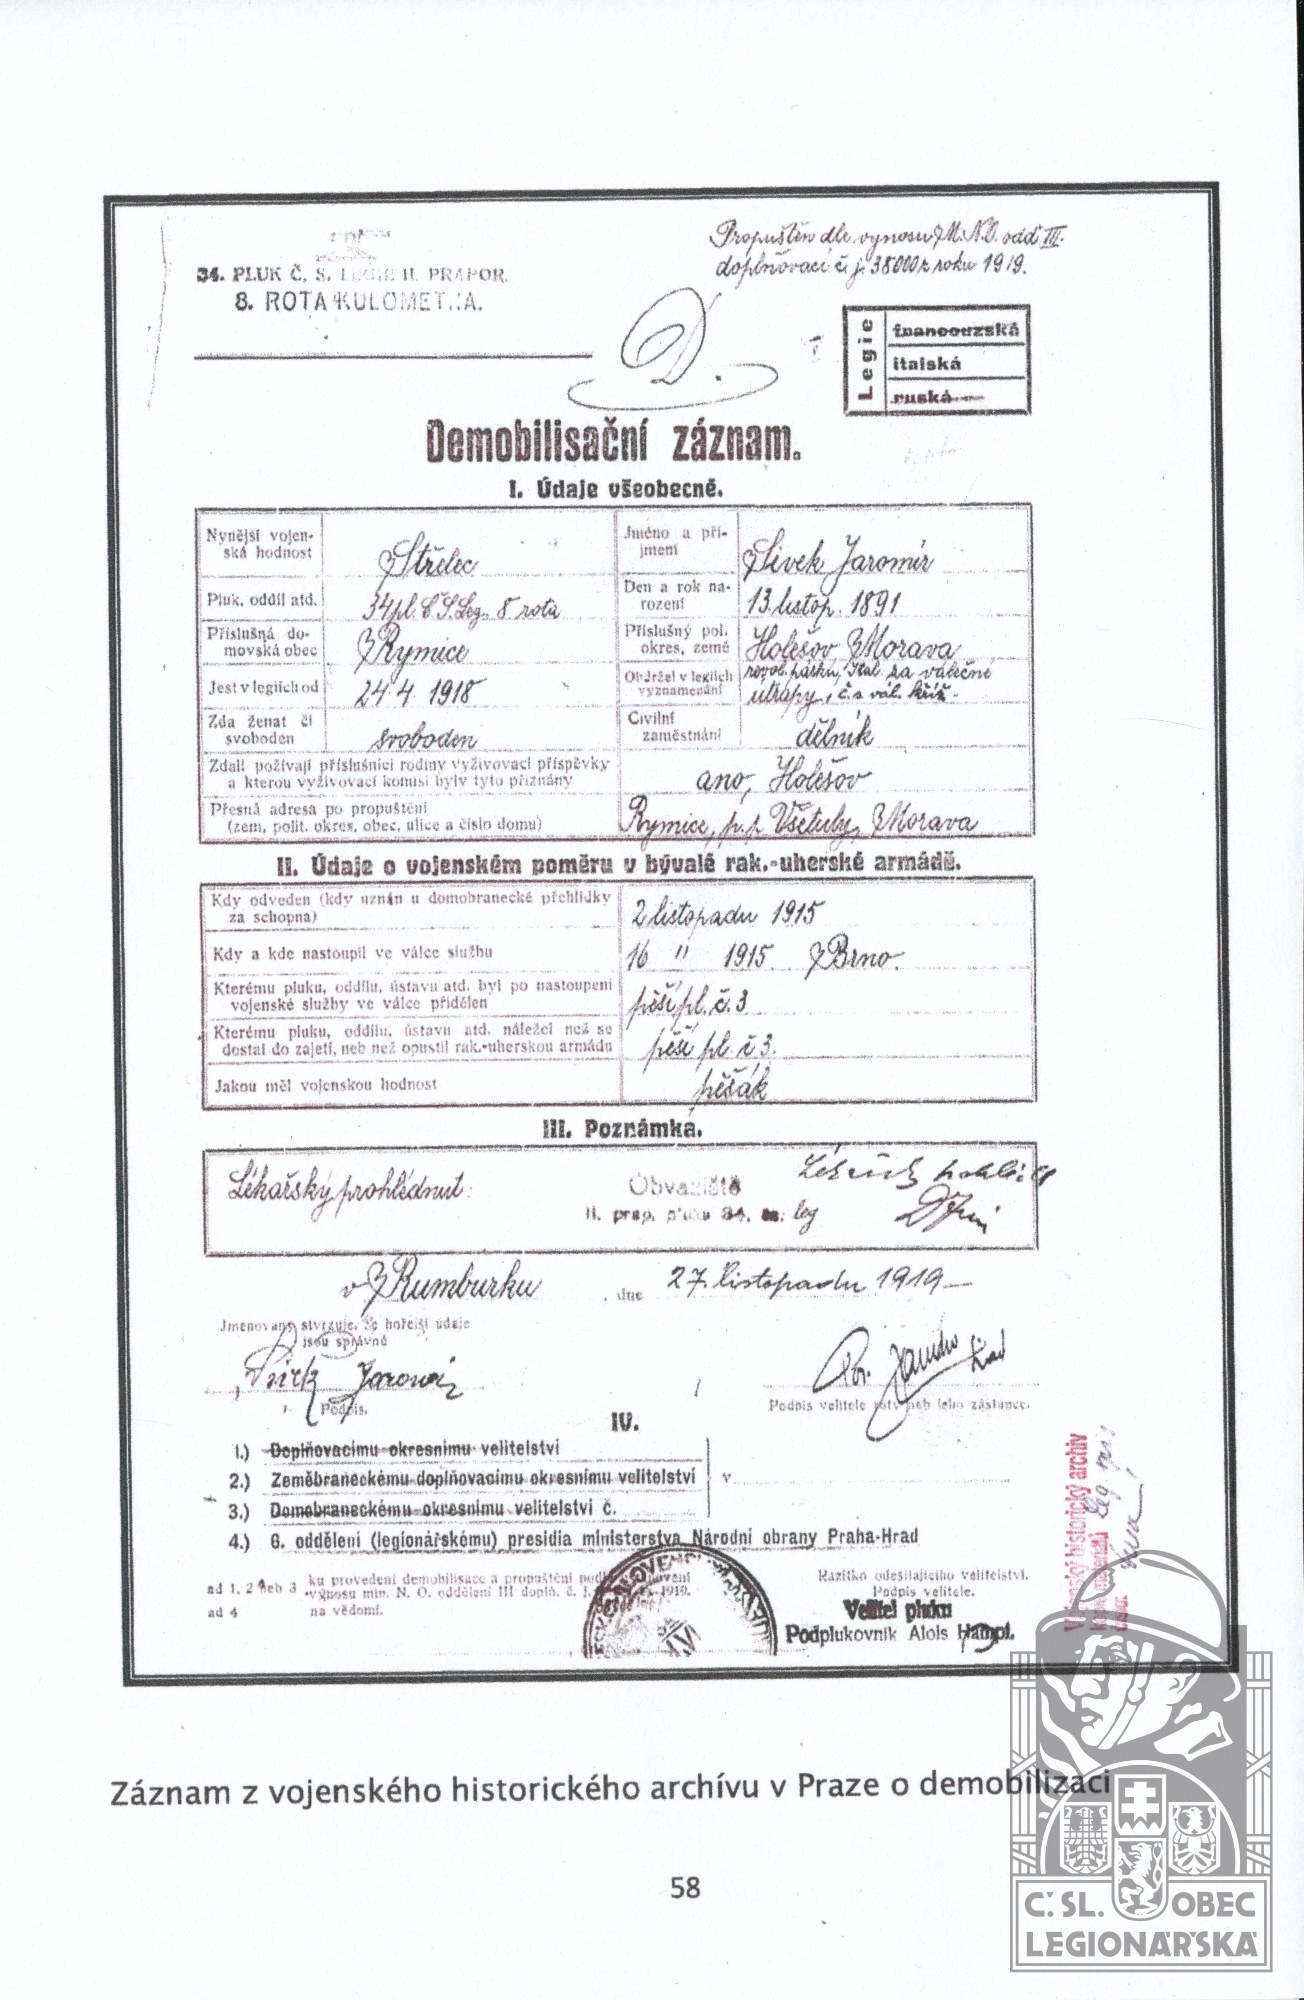 Propuštěn dle vynosu M.N.O. odd III.
doplňovací č. j. 38000 z roku 1919.
34. PLUK Č. S. LEGIE II. PRAPOR.
8. ROTA KULOMETNA.
D.
Legie
francouzská
italská
ruská
Demobilisační záznam.
I. Údaje všeobecné.
Nynější vojen-
ská hodnost
Střelec
Jméno a pří-
jmení
Sivek Jaromír
Pluk, oddíl atd.
34 pl. Č.S. Leg. 8 rota
Den a rok na-
rození
13. listop. 1891
Příslušná do-
movská obec
Rymice
Příslušný pol.
okres, země
Holešov Morava
Jest v legiích od
24.4 1918
Obdržel v legiích
vyznamenání
revol. pásku, Ital. za válečné
útrapy, č.s. vál. kříž.
Zda ženat či
svoboden
svoboden
Civilní
zaměstnání
dělník
Zdali požívají příslušníci rodiny vyživovací příspěvky
a kterou vyživovací komisí byly tyto přiznány
ano, Holešov
Přesná adresa po propuštění
(zem, polit. okres, obec, ulice a číslo domu)
Rymice, p.p. Všetuly, Morava
II. Údaje o vojenském poměru v bývalé rak.-uherské armádě.
Kdy odveden (kdy uznán u domobranecké přehlídky
za schopna)
2 listopadu 1915
Kdy a kde nastoupil ve válce službu
16 " 1915. Brno.
Kterému pluku, oddílu, ústavu atd. byl po nastoupení
vojenské služby ve válce přidělen
pěší pl. č. 3
Kterému pluku, oddílu, ústavu atd. náležel než se
dostal do zajetí, neb než opustil rak.-uherskou armádu
pěší pl. č 3.
Jakou měl vojenskou hodnost
pěšák
III. Poznámka.
Lékařský prohlédnut:
Obvaziště
II. prap. pluku 34. čs. leg
v Rumburku, dne 27. listopadu 1919
Jmenovaný stvrzuje, že hořejší údaje
jsou správné
Sivek Jaromír
Podpis.
Podpis velitele roty neb jeho zástupce.
IV.
1.) Doplňovacímu okresnímu velitelství
2.) Zeměbraneckému doplňovacímu okresnímu velitelství
v
3.) Domobraneckému okresnímu velitelství č.
4.) 6. oddělení (legionářskému) presidia ministerstva Národní obrany Praha-Hrad
ad 1, 2 neb 3 ku provedení demobilisace a propuštění podle
vynosu min. N. O. oddělení III doplň. č. j. 1919.
ad 4 na vědomí.
Razítko odesílajícího velitelství.
Podpis velitele.
Velitel pluku
Podplukovník Alois Hampl.
Vojenský historický archiv
Záznam z vojenského historického archívu v Praze o demobilizaci
58
Č. SL. OBEC
LEGIONÁŘSKÁ